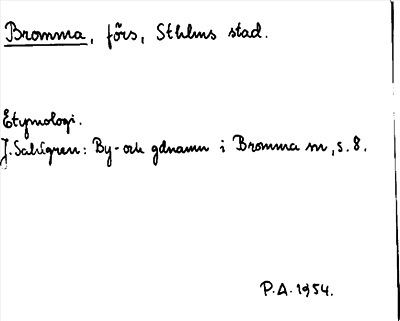 Bromma, förs, Sthlms stad.
Etymologi.
J. Sahlgren: By- och gdnamn i Bromma m, s. 8.
P.A. 1954.